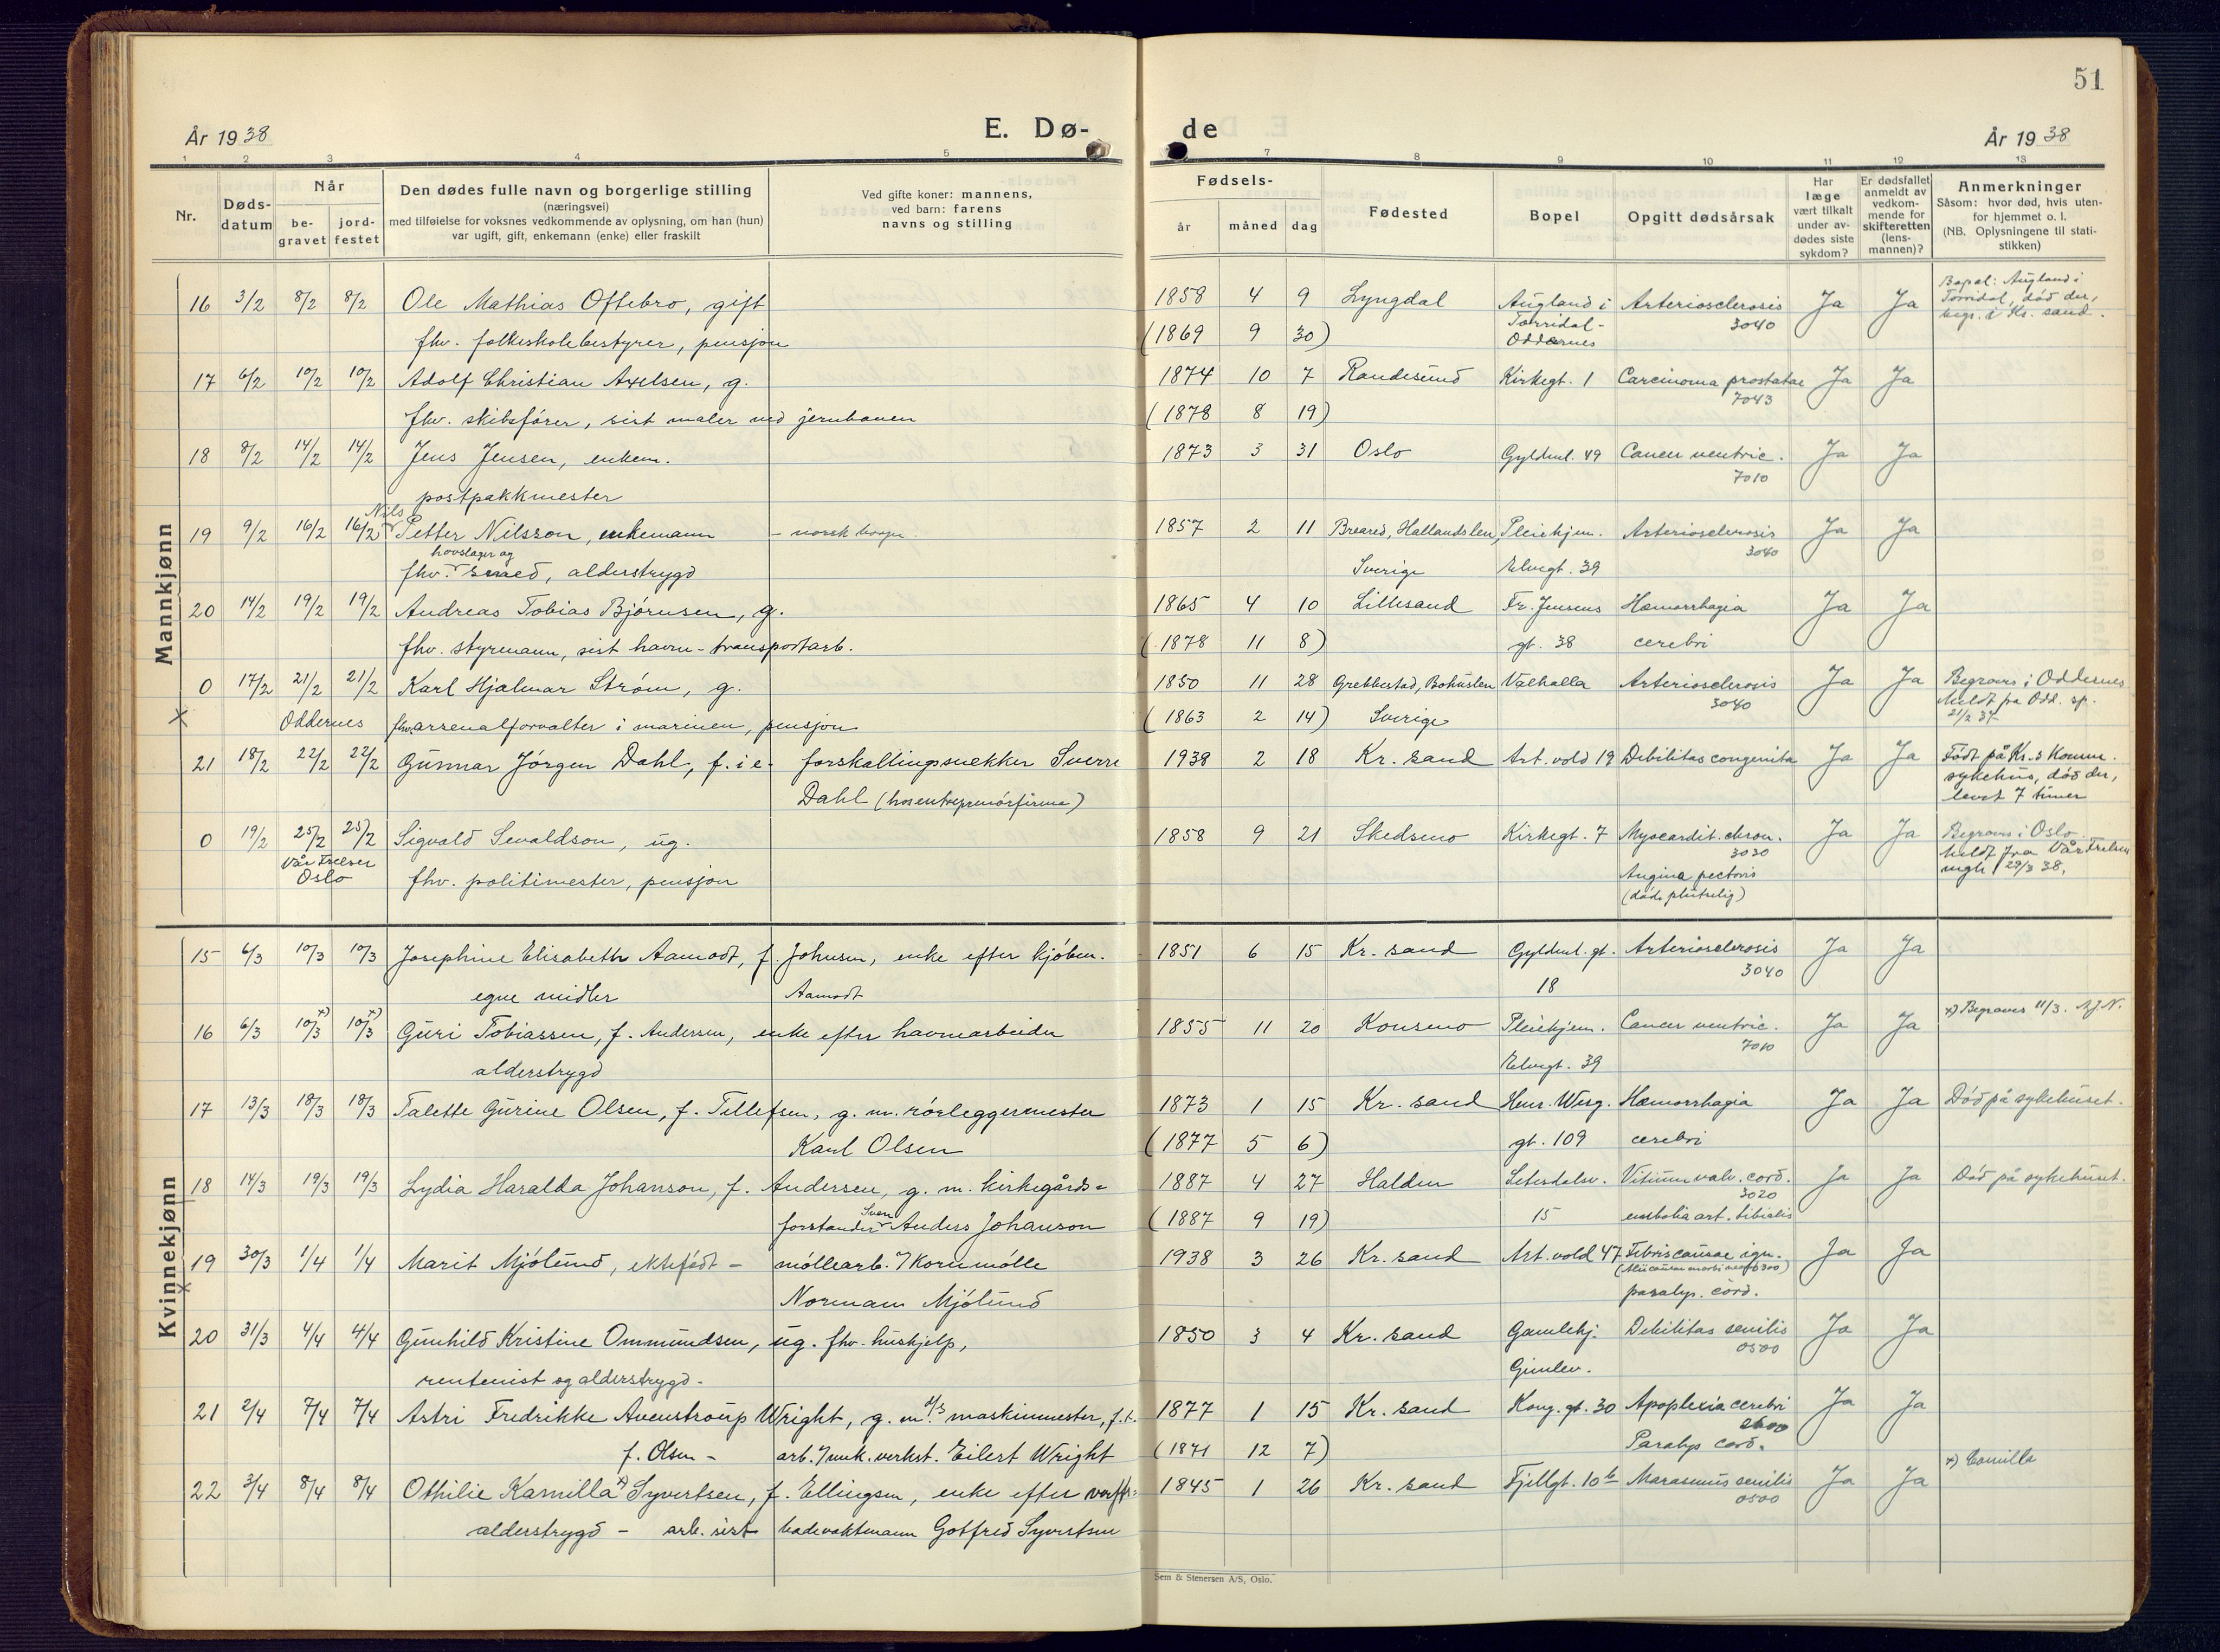 51
År 1938
E. Dø-
de
År 1938
1 2 3 4 5 7 8 9 10 11 12 13
Nr.
Døds-
datum
Når
be-
gravet
jord-
festet
Den dødes fulle navn og borgerlige stilling
(næringsvei)
med tilføielse for voksnes vedkommende av oplysning, om han (hun)
var ugift, gift, enkemann (enke) eller fraskilt
Ved gifte koner: mannens,
ved barn: farens
navns og stilling
Fødsels-
år
måned
dag
Fødested
Bopel
Opgitt dødsårsak
Har
læge
vært tilkalt
under av-
dødes siste
sykdom?
Er dødsfallet
anmeldt av
vedkom-
mende for
skifteretten
(lens-
mannen)?
Anmerkninger
Såsom: hvor død, hvis uten-
for hjemmet o. l.
(NB. Oplysningene til stati-
stikken)
Mannkjønn
16 3/2 8/2 8/2 Ole Mathias Oftebro, gift 1858 4 9 Lyngdal Augland i Arteriosclerosis Ja Ja
fhv. folkeskolebestyrer, pensjon (1869 9 30) Torridal- 3040
Oddernes
Bopel: Augland i
Torridal, død der,
begr. i Kr. sand.
17 6/2 10/2 10/2 Adolf Christian Axelsen, g. 1874 10 7 Randesund Kirkegt. 1 Carcinoma prostatae Ja Ja
7043
fhv. skibsfører, sist maler ved jernbanen (1878 8 19)
18 8/2 14/2 14/2 Jens Jensen, enkem. 1873 3 31 Oslo Gyldenl. 49 Cancer ventric. Ja Ja
7010
postpakkmester
Nils
19 9/2 16/2 16/2 Petter Nilsson, enkemann - norsk borger. 1857 2 11 Breared, Hallandslen, Pleiehjem. Arteriosclerosis Ja Ja
3040
hovslager og
fhv. smed, alderstrygd Sverige Elvegt. 39
20 14/2 19/2 19/2 Andreas Tobias Bjørnsen, g. 1865 4 10 Lillesand Fr. Jensens Hæmorrhagia Ja Ja
fhv. styrmann, sist havn-transportarb. (1878 11 8) gt. 38 cerebri
0 17/2 21/2 21/2 Karl Hjalmar Strøm, g. 1850 11 28 Grebbestad, Bohuslen Valhalla Arteriosclerosis Ja Ja
3040
x Oddernes fhv. arsenalforvalter i marinen, pensjon (1863 2 14) Sverige
Begraves i Oddernes
Meldt fra Odd. sp.
21/2 37
21 18/2 22/2 22/2 Gunnar Jørgen Dahl, f. i e- forskallingsnekker Sverre 1938 2 18 Kr. sand Art. vold 19 Debilitas congenita Ja Ja
Dahl (hos entreprenørfirma)
Født på Kr. s Komm.
sykehus, død der,
levet 7 timer
0 19/2 25/2 25/2 Sigvald Sevaldson, ug. 1858 9 21 Skedsmo Kirkegt. 7 Myocardit. chron. Ja Ja
3030
Vår Frelser
Oslo fhv. politimester, pensjon Angina pectoris
(døde plutselig)
Begraves i Oslo.
Meldt fra Vår Frelsers
mgh 29/3 38.
Kvinnekjønn
15 6/3 10/3 10/3 Josephine Elisabeth Aamodt, f. Johnsen, enke efter kjøbm. 1851 6 15 Kr. sand Gyldenl. gt. Arteriosclerosis Ja Ja
3040
egne midler Aamodt 18
16 6/3 10/3 x) 10/3 x) Guri Tobiassen, f. Andersen, enke efter havnearbeider 1855 11 20 Konsmo Pleiehjem. Cancer ventric. Ja Ja x) Begraves 11/3. N.J.N.
7010
alderstrygd Elvegt. 39
17 13/3 18/3 18/3 Talette Gurine Olsen, f. Tellefsen, g. m. rørleggermester 1873 1 15 Kr. sand Henr. Werg. Hæmorrhagia Ja Ja Død på sykehuset.
Karl Olsen (1877 5 6) gt. 109 cerebri
18 14/3 19/3 19/3 Lydia Haralda Johanson, f. Andersen, g. m. kirkegårds- 1887 4 27 Halden Setesdalsv. Vitium valv. cord. Ja Ja Død på sykehuset.
3020
Sven
forstander Anders Johanson (1887 9 19) 15 embolia art. tibialis
19 30/3 1/4 1/4 Marit Mjølund, ektefødt - møllearb. v/ Kornmølle 1938 3 26 Kr. sand Art. vold 47 Febris causae ign. Ja Ja
x Normann Mjølund paralys. cord.
20 31/3 4/4 4/4 Gunhild Kristine Ommundsen, ug. fhv. hushjelp, 1850 3 4 Kr. sand Gamlehj. Debilitas senilis Ja Ja
0500
rentenist og alderstrygd. Gimlev.
21 2/4 7/4 7/4 Astri Fredrikke Avenstroup Wright, g. m. maskinmester, f.t. 1877 1 15 Kr. sand Kong. gt. 30 Apoplexia cerebri Ja Ja
2600
f. Olsen - arb. v/ mek. verkst. Eilert Wright (1871 12 7) Paralys cord.
22 3/4 8/4 8/4 Othilie Kamilla x) Syvertsen, f. Ellingsen, enke efter verfts- 1845 1 26 Kr. sand Fjellgt. 10 b Marasmus senilis Ja Ja x) Camilla
0500
alderstrygd - arb. sist badevaktmann Gotfred Syvertsen
Sem & Stenersen A/S, Oslo.